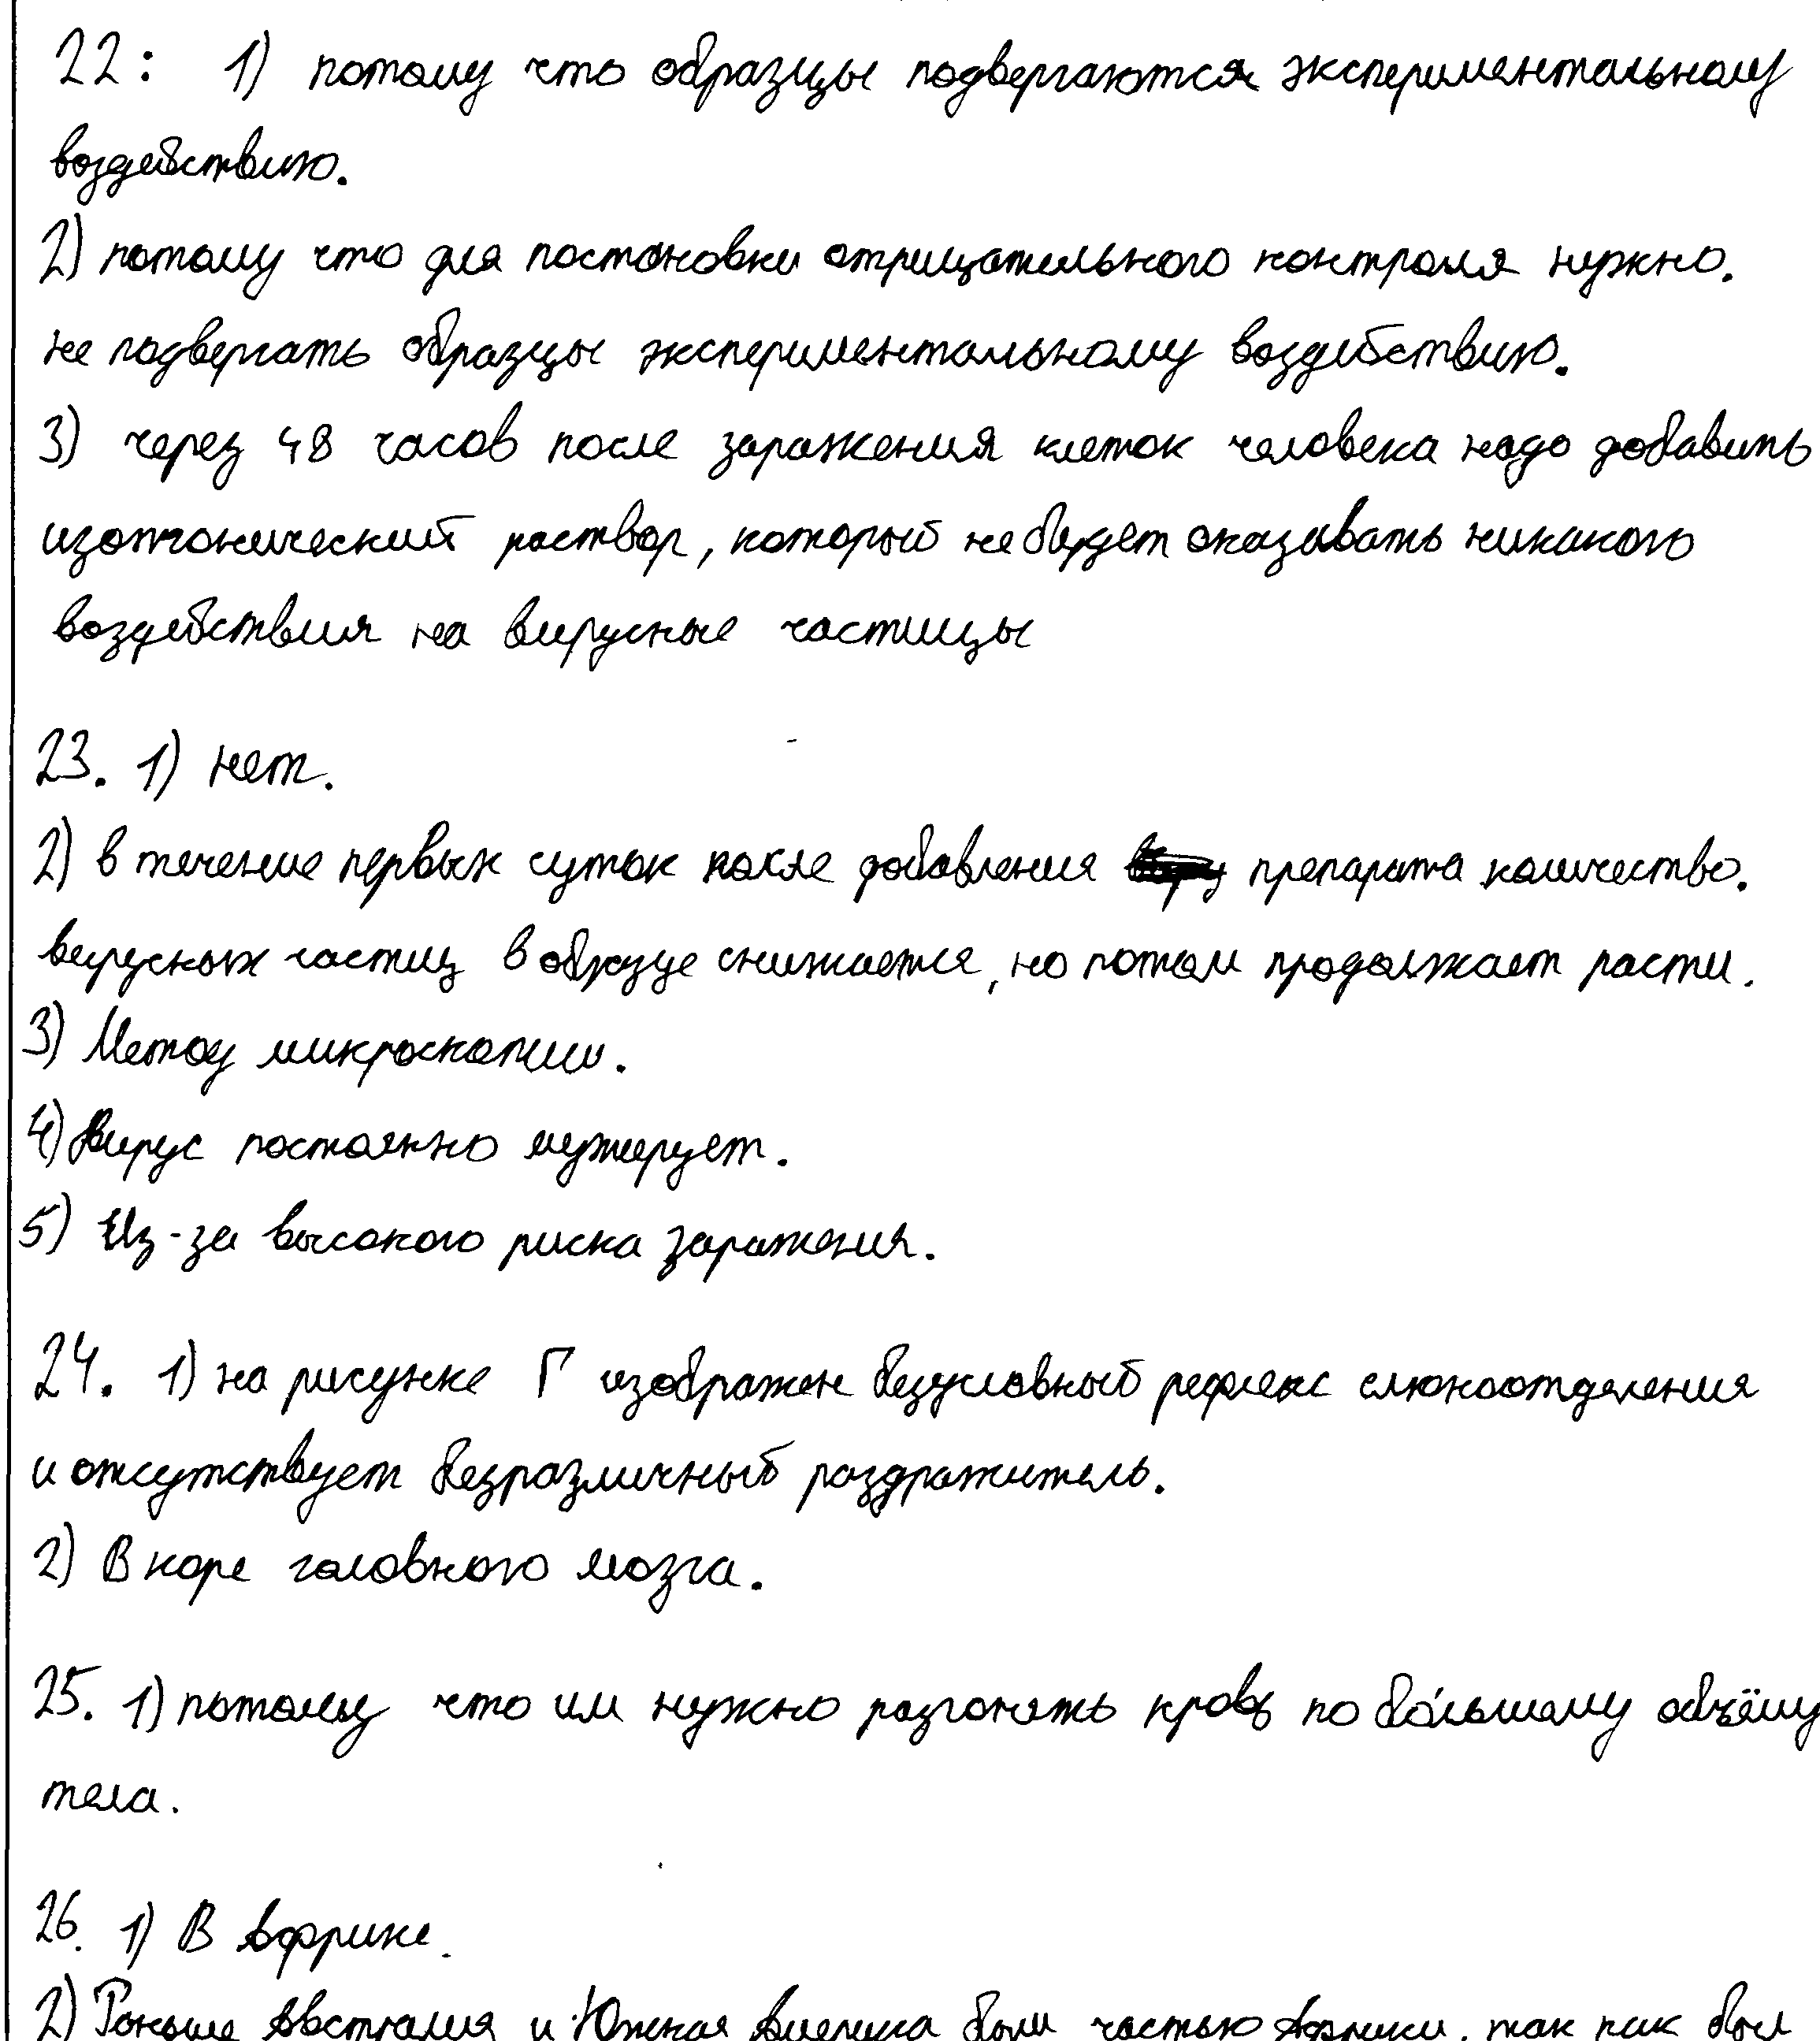 22: 1) потому что образцы подвергаются экспериментальному
воздействию.
2) потому что для постановки отрицательного контроля нужно.
не подвергать образцы экспериментальному воздействию.
3) через 48 часов после заражения клеток человека надо добавить
изотонический раствор, который не будет оказывать никакого
воздействия на вирусные частицы
23. 1) нет.
2) в течение первых суток после добавления препарата количество.
вирусных частиц в образце снижается, но потом продолжает расти.
3) Метод микроскопии.
4) Вирус постоянно мутирует.
5) Из-за высокого риска заражения.
24. 1) на рисунке Г изображен безусловный рефлекс слюноотделения
и отсутствует безразличный раздражитель.
2) В коре головного мозга.
25. 1) потому что им нужно разгонять кровь по бо́льшему объёму
тела.
26. 1) В Африке.
2) Раньше Австралия и Южная Америка были частью Африки, так как был